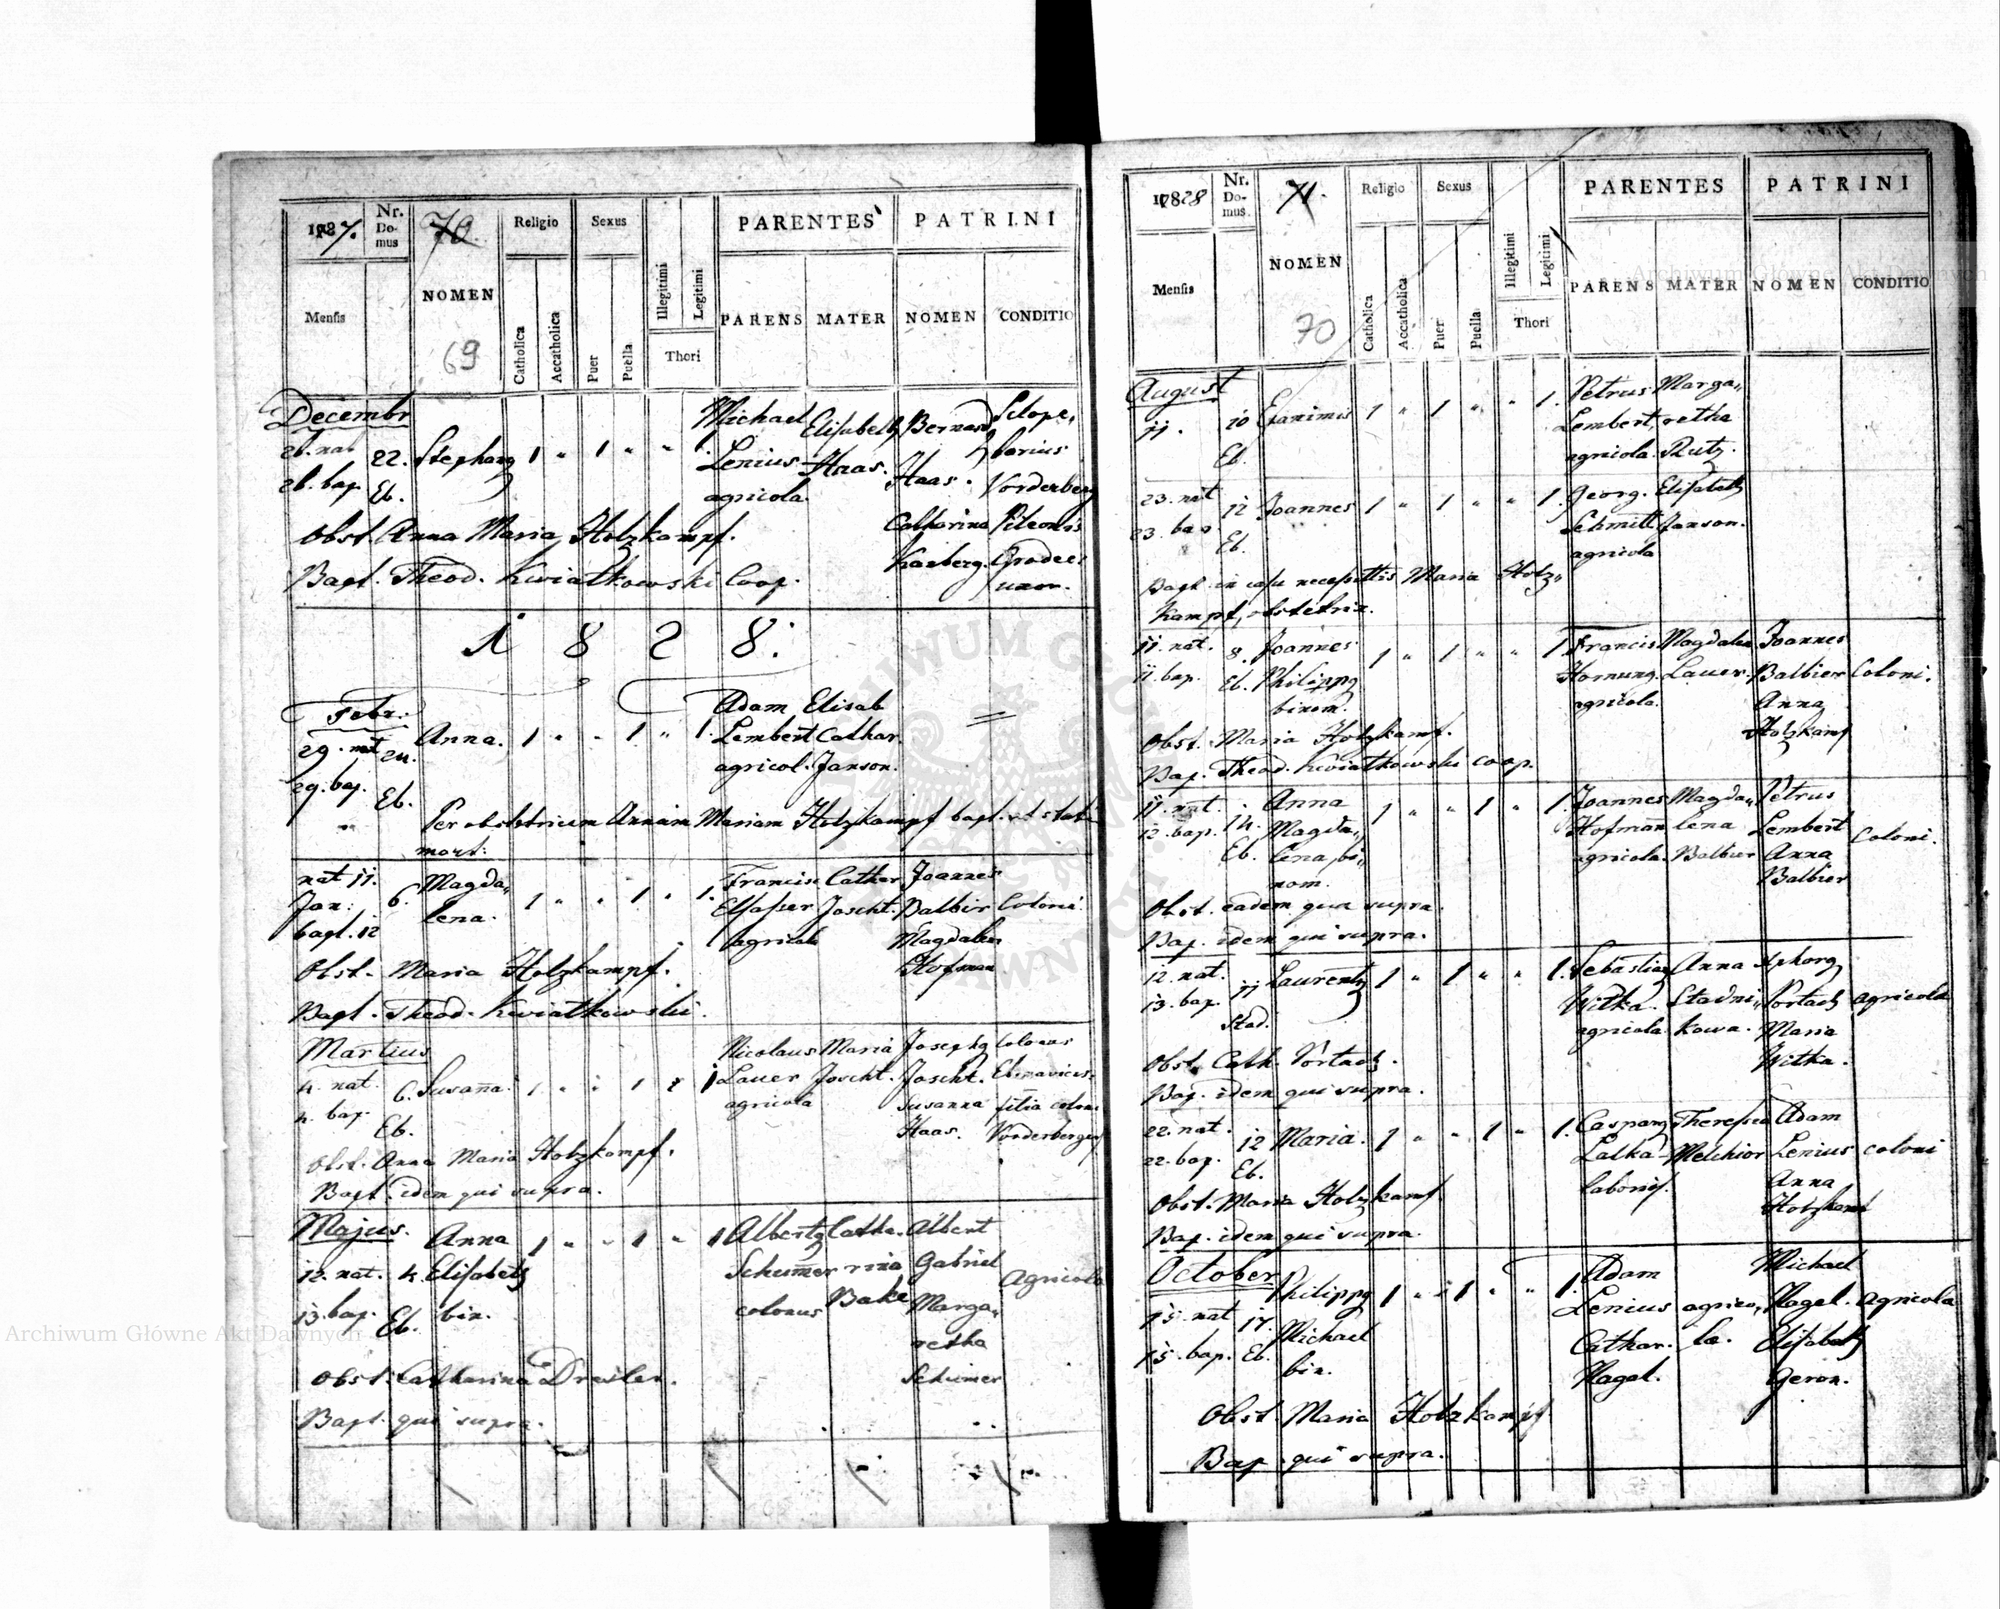 1827.
Nr. Domus
70
69
NOMEN
Religio
Sexus
PARENTES
PATRINI
Mensis
Catholica
Accatholica
Puer
Puella
Illegitimi
Legitimi
Thori
PARENS
MATER
NOMEN
CONDITIO
Decembr
26. nat 22. Stephanus 1 " 1 " " 1. Michael Elisabeth Bernard
26. bap. Eb. Lenius Haas. Haas. Vorderberg
agricola
Obst. Anna Maria Holzkampf. Catharina
Bapt. Theod. Kwiatkowski Coop. uxor.
1828.
Febr.
29. nat 24. Anna. 1 " " 1 " 1. Adam Elisab
29. bap. Eb. Lembert Cathar.
agricol. Janson.
Per obstetricem Annam Mariam Holzkampf bapt. et statim
mort:
nat 11. 6. Magda„ 1 " " 1 " 1. Francisc Cathar Joannes
Jan: lena. Elsasser Joscht. Balbir Coloni
bapt. 12 agricola Magdalena
Obst. Maria Holzkampf. Hofman
Bapt. Theod. Kwiatkowski.
Martius
4. nat. 6. Susaña. 1 " " 1 " 1 Nicolaus Maria Josephus Colonus
4. bap. Eb. Lauer Joscht. Joscht.
agricola Susanna filia coloni
Haas. Vorderbergen
Obst. Anna Maria Holzkampf.
Bapt. idem qui supra.
Majus. Anna 1 " " 1 " 1 Albertus Catha- Albert
12. nat. 4. Elisabeth Schumer rina Gabriel Agricola
13. bap. Eb. bin. colonus Bake Marga-
retha
Obst. Catharina Dresler. Schumer
Bapt. qui supra.
1828
Nr. Domus
71.
NOMEN
70
Religio
Sexus
PARENTES
PATRINI
Mensis
Catholica
Accatholica
Puer
Puella
Illegitimi
Legitimi
Thori
PARENS
MATER
NOMEN
CONDITIO
August
11. 10 Exanimis 1 " 1 " " 1. Petrus Marga„
Eb. Lembert retha
agricola. Rutz.
23. nat 12 Joannes 1 " 1 " " 1. Georg. Elisabeth
23. bap. Eb. Schmitt Janson.
agricola
Bapt. in casu necessitatis Maria Holz„
kampf, obstetrix.
11. nat. 8. Joannes 1 " 1 " " 1. Francis. Magdalena Joannes
11. bap. Eb. Philippus Hornung. Lauer. Balbier Coloni.
binom. agricola. Anna
Obst. Maria Holzkampf. Holzkampf
Bap. Theod. Kwiatkowski coop.
11. nat. 14. Anna 1 " " 1 " 1. Joannes Magda„ Petrus
12. bap. Eb. Magda„ Hofmañ lena Lembert Coloni.
lena, bi„ agricola. Balbier Anna
nom. Balbier
Obst. eadem qua supra.
Bap. idem qui supra.
12. nat. 11 Laurentius 1 " 1 " " 1. Sebastian Anna
13. bap. Stad. Witka. Stadni„ Portach agricola
agricola kowa. Maria
Obst. Cath. Portach. Witka.
Bap. idem qui supra.
22. nat. 12 Maria. 1 " " 1 " 1. Casparus Theresia Adam
22. bap. Eb. Lalka Melchior Lenius coloni
Anna
Obst. Maria Holzkampf. Holzkamf
Bap. idem qui supra.
October
15. nat 17. Philippus 1 " 1 " " 1. Adam Michael
15. bap. Eb. Michael Lenius agrico„ Nagel. Agricola
bin. Cathar. la. Elisabeth
Nagel. Geron.
Obst. Maria Holzkampf
Bap. qui supra.
Archiwum Główne Akt Dawnych
Archiwum Główne Akt Dawnych